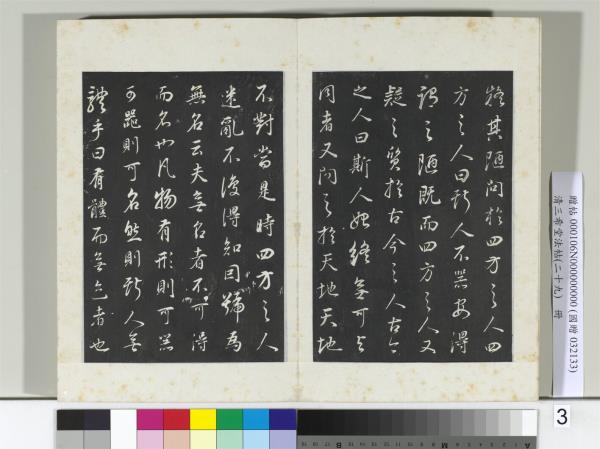 疑其陋问於四方之人四
方之人曰斯人不器安得
謂之陋既而四方之人又
疑之質於古今之人古今
之人曰斯人始終無可與
同者又问之於天地天地
不對當是時四方之人
迷亂不復得知因號為
無名云夫無名者不可得
而名也凡物有形則可器
可器則可名然則斯人無
體乎曰有體而無迹者也
贈帖 000106N000000000 (國贈 032133)
清三希堂法帖(二十九) 冊
3